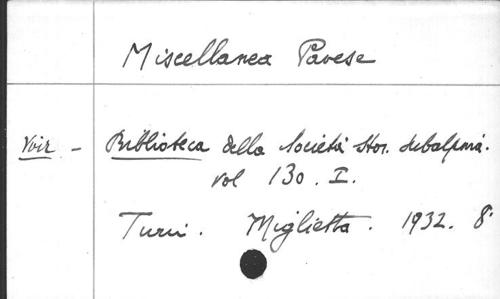 Miscellanea Pavese
Voir - Biblioteca della Società Stor. subalpina.
vol 130. I.
Turin. Miglietta. 1932. 8°